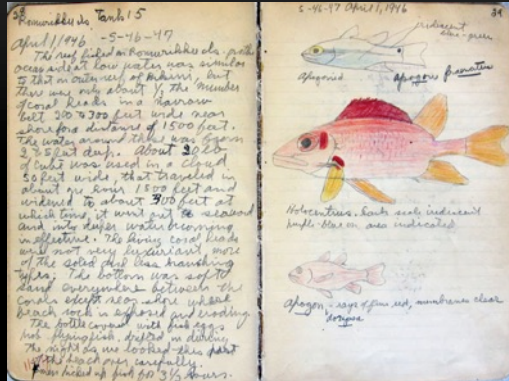 28
Romurikku Is. Tank 15
April 1 1946 -S-46-97
The reef fished on Romurikku Is. on the
ocean side at low water was similar
to that on outer reef of Bikini, but
there was only about 1/2 the number
of coral heads in a narrow
belt 200 to 300 feet wide near
shore for a distance of 1500 feet.
The water around these was from
2 to 5 feet deep. About
of cube was used in a cloud
50 feet wide, that traveled in
about one hour 1500 feet and
widened to about 300 feet at
which time, it went out to seaward
and into deeper water becoming
ineffective. The living coral heads
were not very luxuriant more
of the solid and less branching
types. The bottom was softly
sand everywhere between the
corals except near shore where
beach rock is exposed and eroding.
The bottle covered with fish eggs
flying fish, drifted in during
the night as we looked this part
of the beach over carefully.
picked up fish for 3 1/2 hours.
S-46-97 April 1, 1946
29
iridescent
blue-green
Apogonid
Apogon
Holocentrus. Each scale iridescent
purple-blue on area indicated
Apogon - rays of fins red, membranes clear